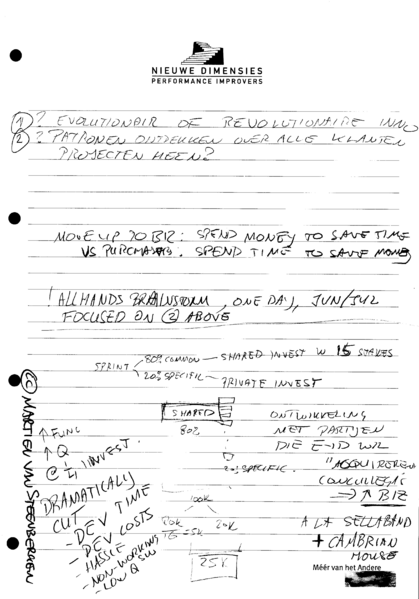 NIEUWE DIMENSIES
PERFORMANCE IMPROVERS
1 ? EVOLUTIONAIR OF REVOLUTIONAIRE INNO
2 ? PATRONEN ONTDEKKEN OVER ALLE KLANTEN
PROJECTEN HEEN?
MOVE UP TO BIZ: SPEND MONEY TO SAVE TIME
VS PURCHASING. SPEND TIME TO SAVE MONEY
! ALLHANDS BRAINSTORM, ONE DAY, JUN/JUL
FOCUSED ON 2 ABOVE
SPRINT
80% COMMON — SHARED INVEST W 15 STAVES
20% SPECIFIC — PRIVATE INVEST
SHARED
80%
20% SPECIFIC.
100K
80K
15 = 5K
20K
25K
ONTWIKKELING
MET PARTIJEN
DIE E-ID WIL
"ACQUIREREN
CONCULLEGA'S
→ ↑ BIZ
A LA SELLABAND
+ CAMBRIAN
HOUSE
↑ FUNC
↑ Q
@ 1/4 INVEST.
DRAMATICALLY
CUT
- DEV TIME
- DEV COSTS
- HASSLE
- NON-WORKING SW
- LOW Q
(CC) MARTIEN VAN STEENBERGEN
Méér van het Andere